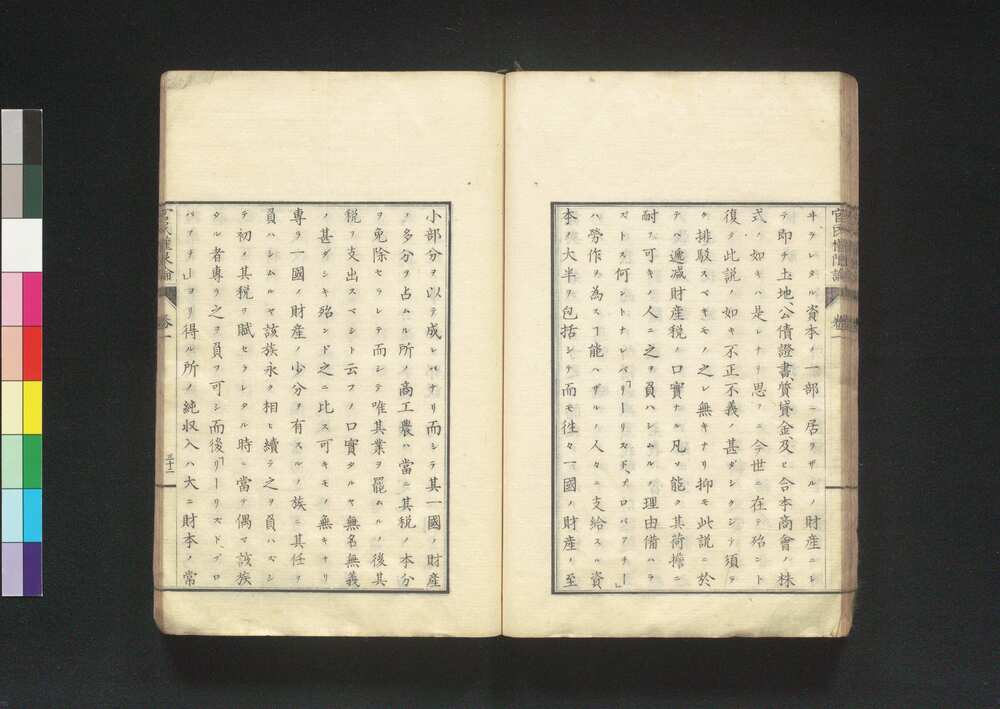 ヰラレタル資本ノ一部ニ居ラザルノ財産ニシ
テ即チ土地、公債證書、質貸金、及ヒ合本商會ノ株
式ノ如キハ是レナリ思フニ今世ニ在テ殆ント
復タ此説ノ如キ不正不義ノ甚ダシクシテ須ラ
ク排駁スベキモノ之レ無キナリ抑モ此説ニ於
テハ遞减財産税ノ口實ナル凡ソ能ク其荷擔ニ
耐フ可キノ人ニ之ヲ員ハシムルノ理由備ハラ
ズトス何ントナレバ「リーリズド、プロパアチー」
ハ勞作ヲ為スヿ能ハザルノ人々ニ支給スル資
本ノ大半ヲ包括シテ而モ徃々一國ノ財産ノ至
小部分ヲ以テ成レバナリ而シテ其一國ノ財産
ノ多分ヲ占ムル所ノ商工農ハ當ニ其税ノ本分
ヲ免除セラレテ而シテ唯其業ヲ罷ムルノ後其
税ヲ支出スベシト云フノ口實タルヤ無名無義
ノ甚ダシキ殆ンド之ニ比ス可キモノ無キナリ
専ラ一國ノ財産ノ少分ヲ有スルノ族ニ其任ヲ
員ハシムルヤ該族永ク相ヒ續テ之ヲ員ハズシ
テ初メ其税ヲ賦セラレタル時ニ當テ偶マ該族
タル者專ラ之ヲ員フ可シ而後「リーリズドプロ
パアチー」ヨリ得ル所ノ純収入ハ大ニ財本ノ常
卷一
三十二